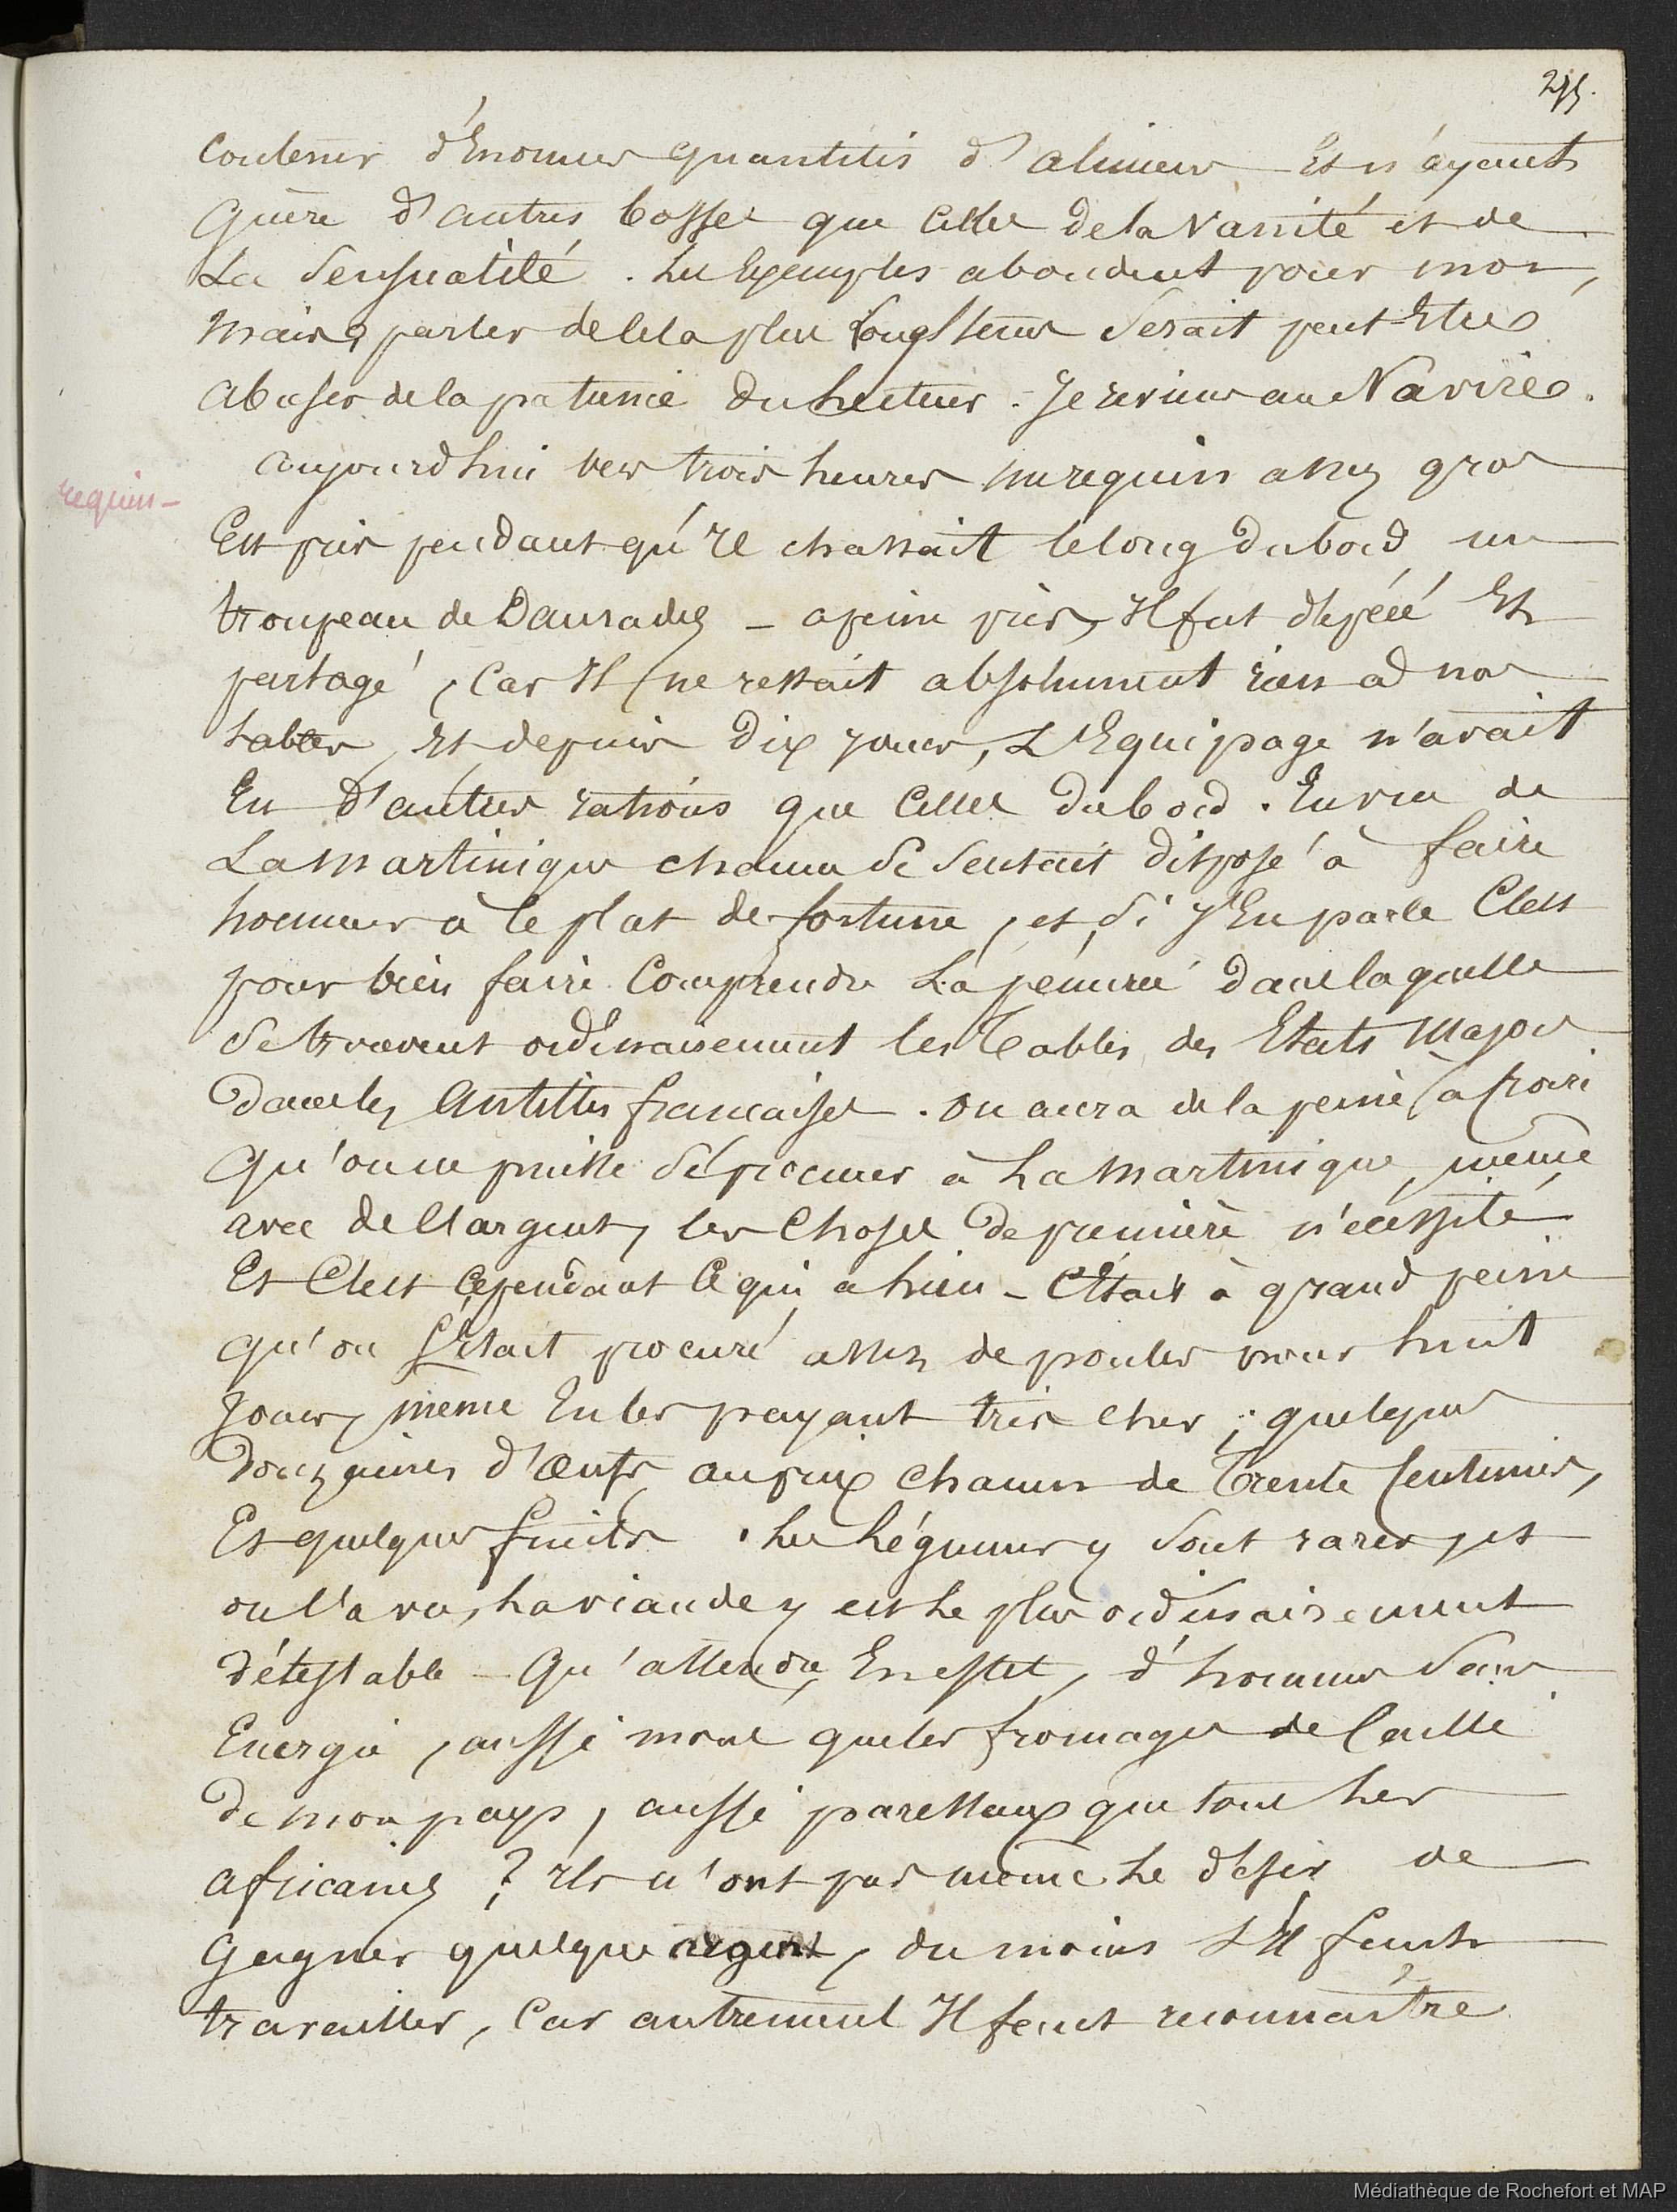 contenir d'Enormes quantités d'alimens Et n'ayant
Guère d'autres bosses que celles de la vanité et de
La Sensualité. Les Exemples abondent pour moi,
Mais, parler de cela plus longtems serait peut-Etre
Abuser de la patience du Lecteur. Je reviens au Navire.
Aujourd'hui vers trois heures un requin assez gros
requin-
Est pris pendant qu'il chassait le long du bord un
troupeau de Daurades - a peine pris, Il fut dépécé Et
partagé, Car Il ne restait absolument rien a nos
tables, Et depuis dix jours, L'Equipage n'avait
Eu d'autres rations que Celles du bord. En vue de
La Martinique chacun se sentait disposé à faire
honneur à ce plat de fortune, et, si j'En parle C'est
pour bien faire Comprendre La pénurie dans laquelle
se trouvent ordinairement les Tables des Etats Major
dans les Antilles françaises. On aura de la peine à croire
Qu'on ne puisse se procurer à La Martinique, même
avec de l'argent, les Choses de première nécessité
Et C'est cependant Ce qui a lieu - C'Etait à grand peine
Qu'on s'Etait procuré assez de poules pour huit
Jours, même En les payant très cher ; quelques
Douzaines d'Œufs au prix chacun de Trente Centimes,
Et quelques fruits. Les Légumes y sont rares, et
on l'a vu, La viande y est Le plus ordinairement
détestable - Qu'attendre, En effet, d'hommes sans
Energie, aussi mous que les fromages de Caillé
De mon pays, aussi paresseux que tous Les
Africains ? Ils n'ont pas même Le désir de
Gagner quelque argent, du moins s'Il faut
travailler, Car autrement Il faut reconnaître